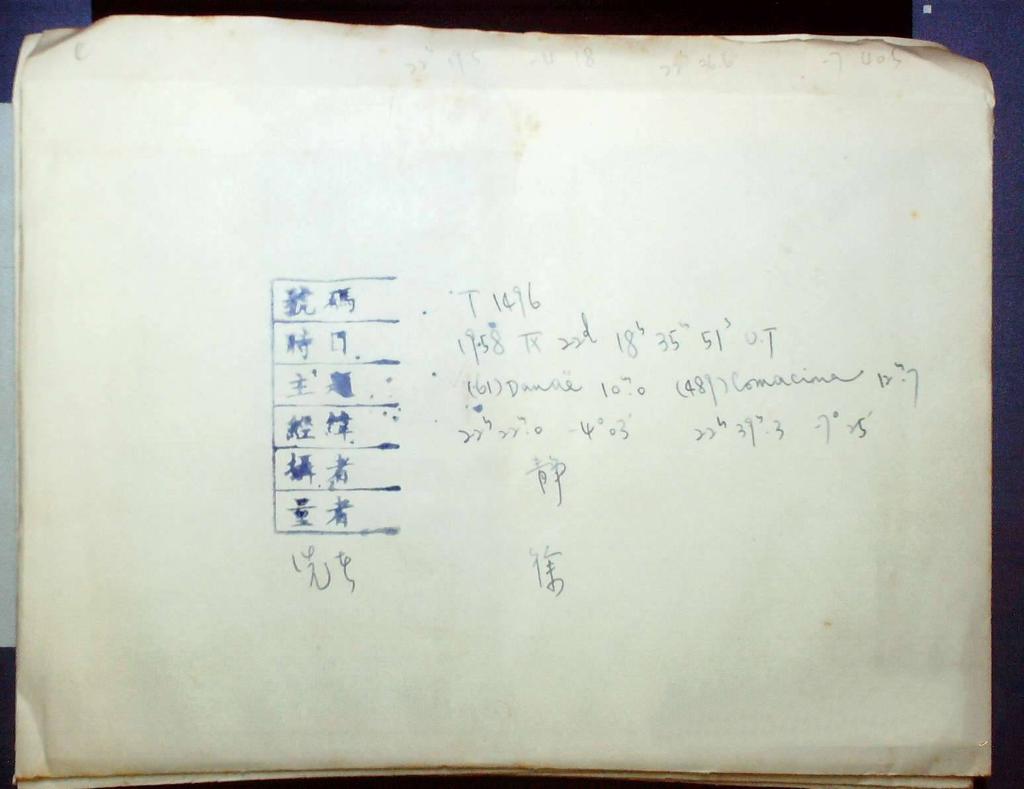 22ʰ 19.5 -4 18 22ʰ 36.6 -7 40.5
號碼 T 1496
時日 1958 IX 22ᵈ 18ʰ 35ᵐ 51ˢ U.T
主題 (61) Danaë 10ᵐ.0 (489) Comacina 12ᵐ.7
經緯 22ʰ 22ᵐ.0 -4°03′ 22ʰ 39ᵐ.3 -7°25′
攝者 静
量者
洗者 徐